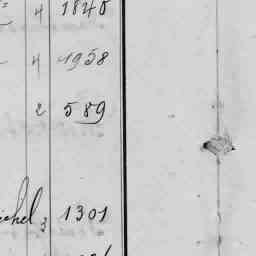 4 1840
4 1958
2 589
ichel 3 1301